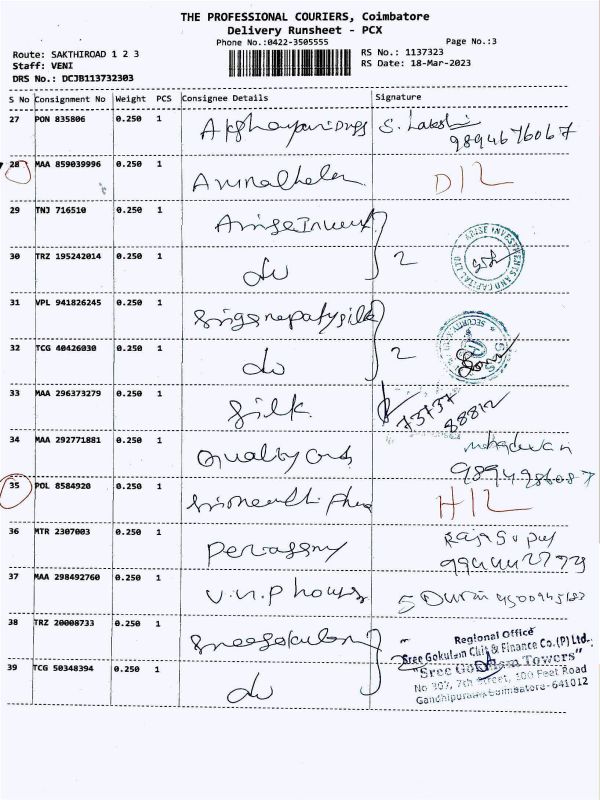 THE PROFESSIONAL COURIERS, Coimbatore
Delivery Runsheet - PCX
Phone No.:0422-3505555
Page No.:3
Route: SAKTHIROAD 1 2 3
RS No.: 1137323
Staff: VENI
RS Date: 18-Mar-2023
DRS No.: DCJB113732303
S No Consignment No Weight PCS Consignee Details Signature
27 PON 835806 0.250 1 S. Lakshmi
9894676067
28 MAA 859039996 0.250 1 D/L
29 TNJ 716510 0.250 1
30 TRZ 195242014 0.250 1 do 2
ARISE INVESTMENTS AND CAPITAL LTD
31 VPL 941826245 0.250 1
32 TCG 40426030 0.250 1 do 2
33 MAA 296373279 0.250 1 Silk
73737
88812
34 MAA 292771881 0.250 1 Quality
35 POL 8584920 0.250 1 H/L
36 MTR 2307003 0.250 1
37 MAA 298492760 0.250 1 V.N.P house
38 TRZ 20008733 0.250 1 Sreegokulam
39 TCG 50348394 0.250 1 do 2
Regional Office
Sree Gokulam Chit & Finance Co.(P) Ltd.
"Sree Gokulam Towers"
No 307, 7th Street, 100 Feet Road
Gandhipuram, Coimbatore-641012